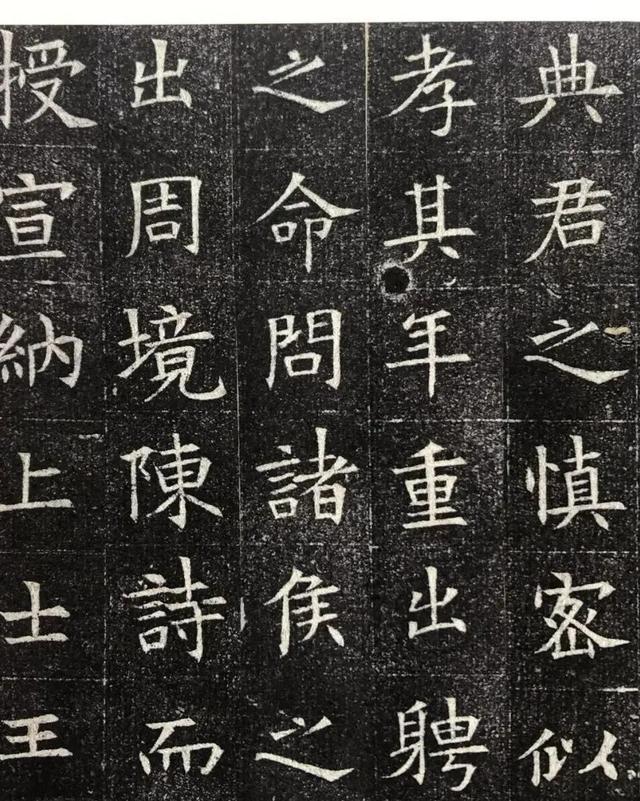 典君之慎密似
孝其年重出聘
之命問諸侯之
出周境陳詩而
授宣納上士王